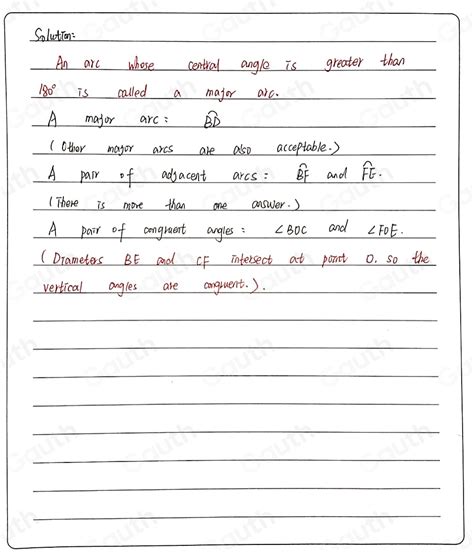 Solution:
An arc whose central angle is greater than
180° is called a major arc.
A major arc: B͡D
(Other major arcs are also acceptable.)
A pair of adjacent arcs: B͡F and F͡E.
(There is more than one answer.)
A pair of congruent angles: ∠BOC and ∠FOE.
(Diameters BE and CF intersect at point O. so the
vertical angles are congruent.).